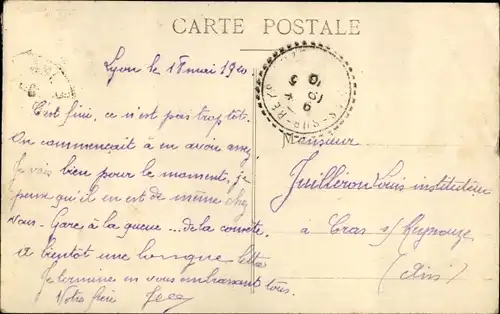 CARTE POSTALE
Lyon le 18 mai 1910
C'est fini, ce n'est pas trop tôt.
On commençait à en avoir assez.
Je vais bien pour le moment, je
pense qu'il en est de même chez
vous. Gare à la queue ... de la comète.
A bientôt une longue lettre
Je termine en vous embrassant tous.
Votre frère
Monsieur
Juilléron Louis instituteur
à Cras s/ Reyssouze
(Ain)